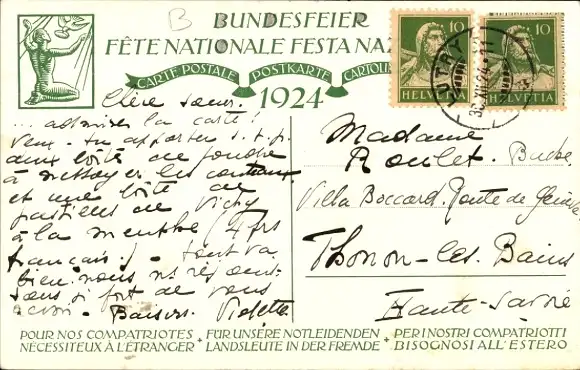 B
BUNDESFEIER
FÊTE NATIONALE FESTA NAZ
CARTE POSTALE POSTKARTE CARTOLI
1924
10 HELVETIA
10 HELVETIA
LUTRY
Chère soeur.
... admirez la carte!
Veux-tu apporter s.t.p.
deux boîtes de poudre
à nettoyer les couteaux
et une boîte de
pastilles de Vichy
à la menthe (4 frs
français!) - tout va
bien. nous ns réjouis-
sons si fort de vous
Baisers. Violette
Madame
Roulet
Villa Boccard. Route de
Thonon-les-Bains
Haute-Savoie
POUR NOS COMPATRIOTES + FÜR UNSERE NOTLEIDENDEN + PER I NOSTRI COMPATRIOTTI
NÉCESSITEUX À L'ÉTRANGER + LANDSLEUTE IN DER FREMDE + BISOGNOSI ALL'ESTERO